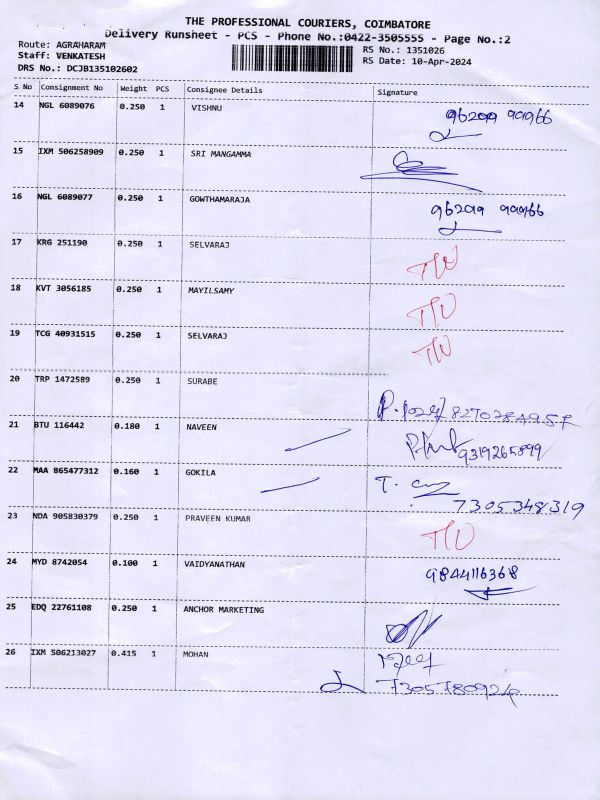 THE PROFESSIONAL COURIERS, COIMBATORE
Delivery Runsheet - PCS - Phone No.:0422-3505555 - Page No.:2
Route: AGRAHARAM
Staff: VENKATESH
DRS No.: DCJB135102602
RS No.: 1351026
RS Date: 10-Apr-2024
S No Consignment No Weight PCS Consignee Details Signature
14 NGL 6089076 0.250 1 VISHNU
15 IXM 506258909 0.250 1 SRI MANGAMMA
16 NGL 6089077 0.250 1 GOWTHAMARAJA
17 KRG 251190 0.250 1 SELVARAJ T/U
18 KVT 3056185 0.250 1 MAYILSAMY T/U
19 TCG 40931515 0.250 1 SELVARAJ T/U
20 TRP 1472589 0.250 1 SURABE
21 BTU 116442 0.180 1 NAVEEN 9319265899
22 MAA 865477312 0.160 1 GOKILA
7305348319
23 NDA 905830379 0.250 1 PRAVEEN KUMAR T/U
24 MYD 8742054 0.100 1 VAIDYANATHAN 9844116368
25 EDQ 22761108 0.250 1 ANCHOR MARKETING
26 IXM 506213027 0.415 1 MOHAN